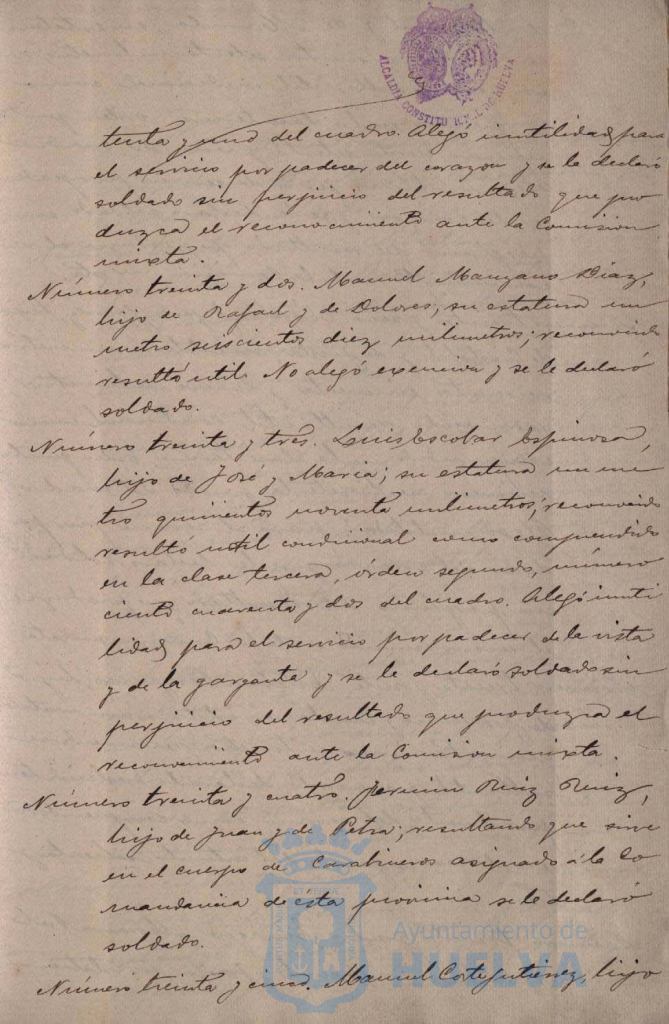 ALCALDIA CONSTITUCIONAL DE HUELVA
tenta y uno del cuadro. Alegó inutilidad para
el servicio por padecer del corazon y se le declaró
soldado sin perjuicio del resultado que pro
duzca el reconocimiento ante la Comision
mixta.
Número treinta y dos. Manuel Manzano Diaz,
hijo de Rafael y de Dolores, su estatura un
metro seiscientos diez milimetros; reconocido
resultó util. No alegó excencion y se le declaró
soldado.
Número treinta y tres. Luis Escobar Espinosa,
hijo de José y Maria; su estatura un me
tro quinientos noventa milimetros; reconocido
resultó util condicional como comprendido
en la clase tercera, órden segundo, número
ciento cuarenta y dos del cuadro. Alegó inuti
lidad para el servicio por padecer de la vista
y de la garganta y se le declaró soldado sin
perjuicio del resultado que produzca el
reconocimiento ante la Comision mixta.
Número treinta y cuatro. Fermin Ruiz Ruiz,
hijo de Juan y de Petra; resultando que sirve
en el cuerpo de Carabineros asignado á la Co
mandancia de esta provincia se le declaró
soldado.
Ayuntamiento de
HUELVA
Número treinta y cinco. Manuel Corte Gutierrez, hijo